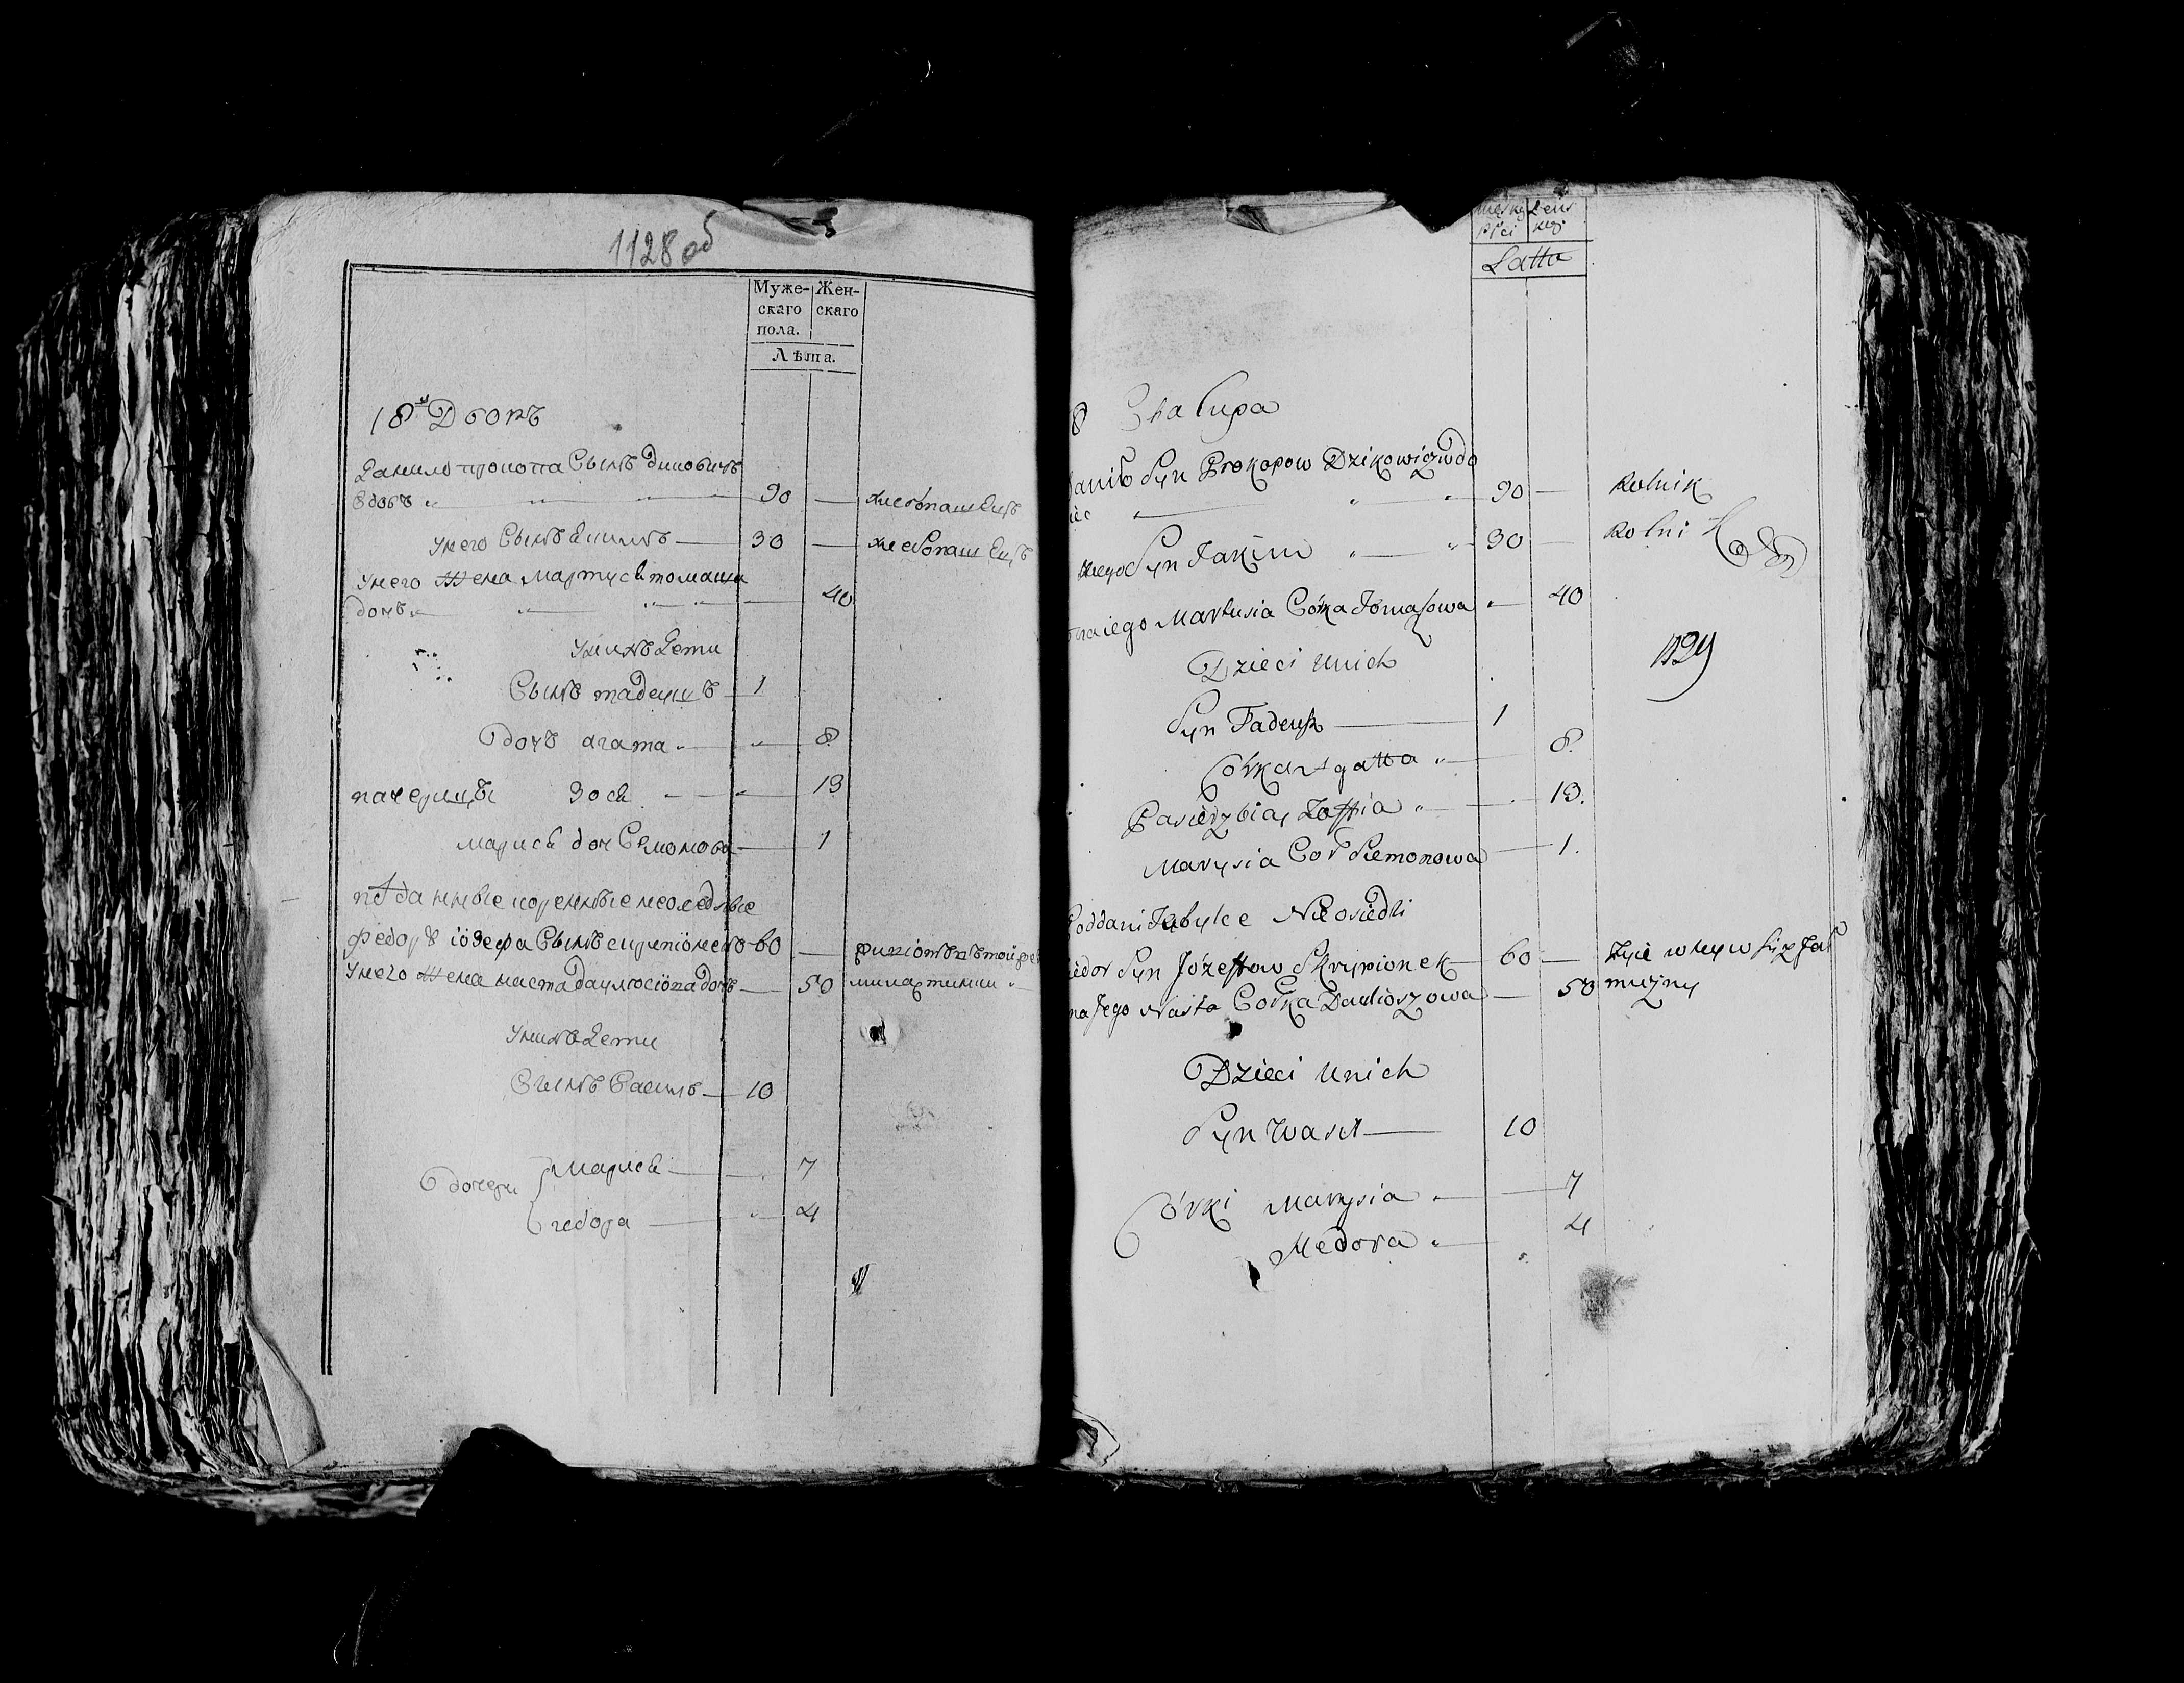 1128 об
Муже- Жен-
скаго скаго
пола.
Лѣта.
18й Дворъ
Данило прокопа Сынъ диковичъ
вдовъ 90 — хлебопашецъ
унего Сынъ Екимъ — 30 — хлебопашецъ
унего Жена Мартуся томаша
дочъ 40
унихъ дети
Сынъ тадеушъ — 1
дочъ агата 8
падчерицы Зося — 13
марися доч Семонова — 1
подданные коренные неоседлые
федоръ іозефа Сынъ скрипіонекъ 60 —
унего Жена наста дочъ — 50
унихъ дети
Сынъ Василъ — 10
дочери Марися — 7
4
Męsky Żeńs
Płci kiej
Latta
8 Chalupa
Danilo Syn Prokopow Dzikowicz wdo
iec 90 — Rolnik
Niego Syn Jakim 30 — Rolni
Żona iego Martusia Córka Tomaszowa 40
Dzieci Unich
1129
Syn Tadeusz — 1
Corka Agatta 8.
Pasierzbia Zoffia 13.
Marysia Cor Siemonowa — 1.
Poddani Nieosiedli
Fiedor Syn Józeffow Skrypionek 60 —
Żona Jego Nasta Corka Dawioszowa — 50
Dzieci Unich
Syn Wasil — 10
Córki Marysia 7
Medora 4